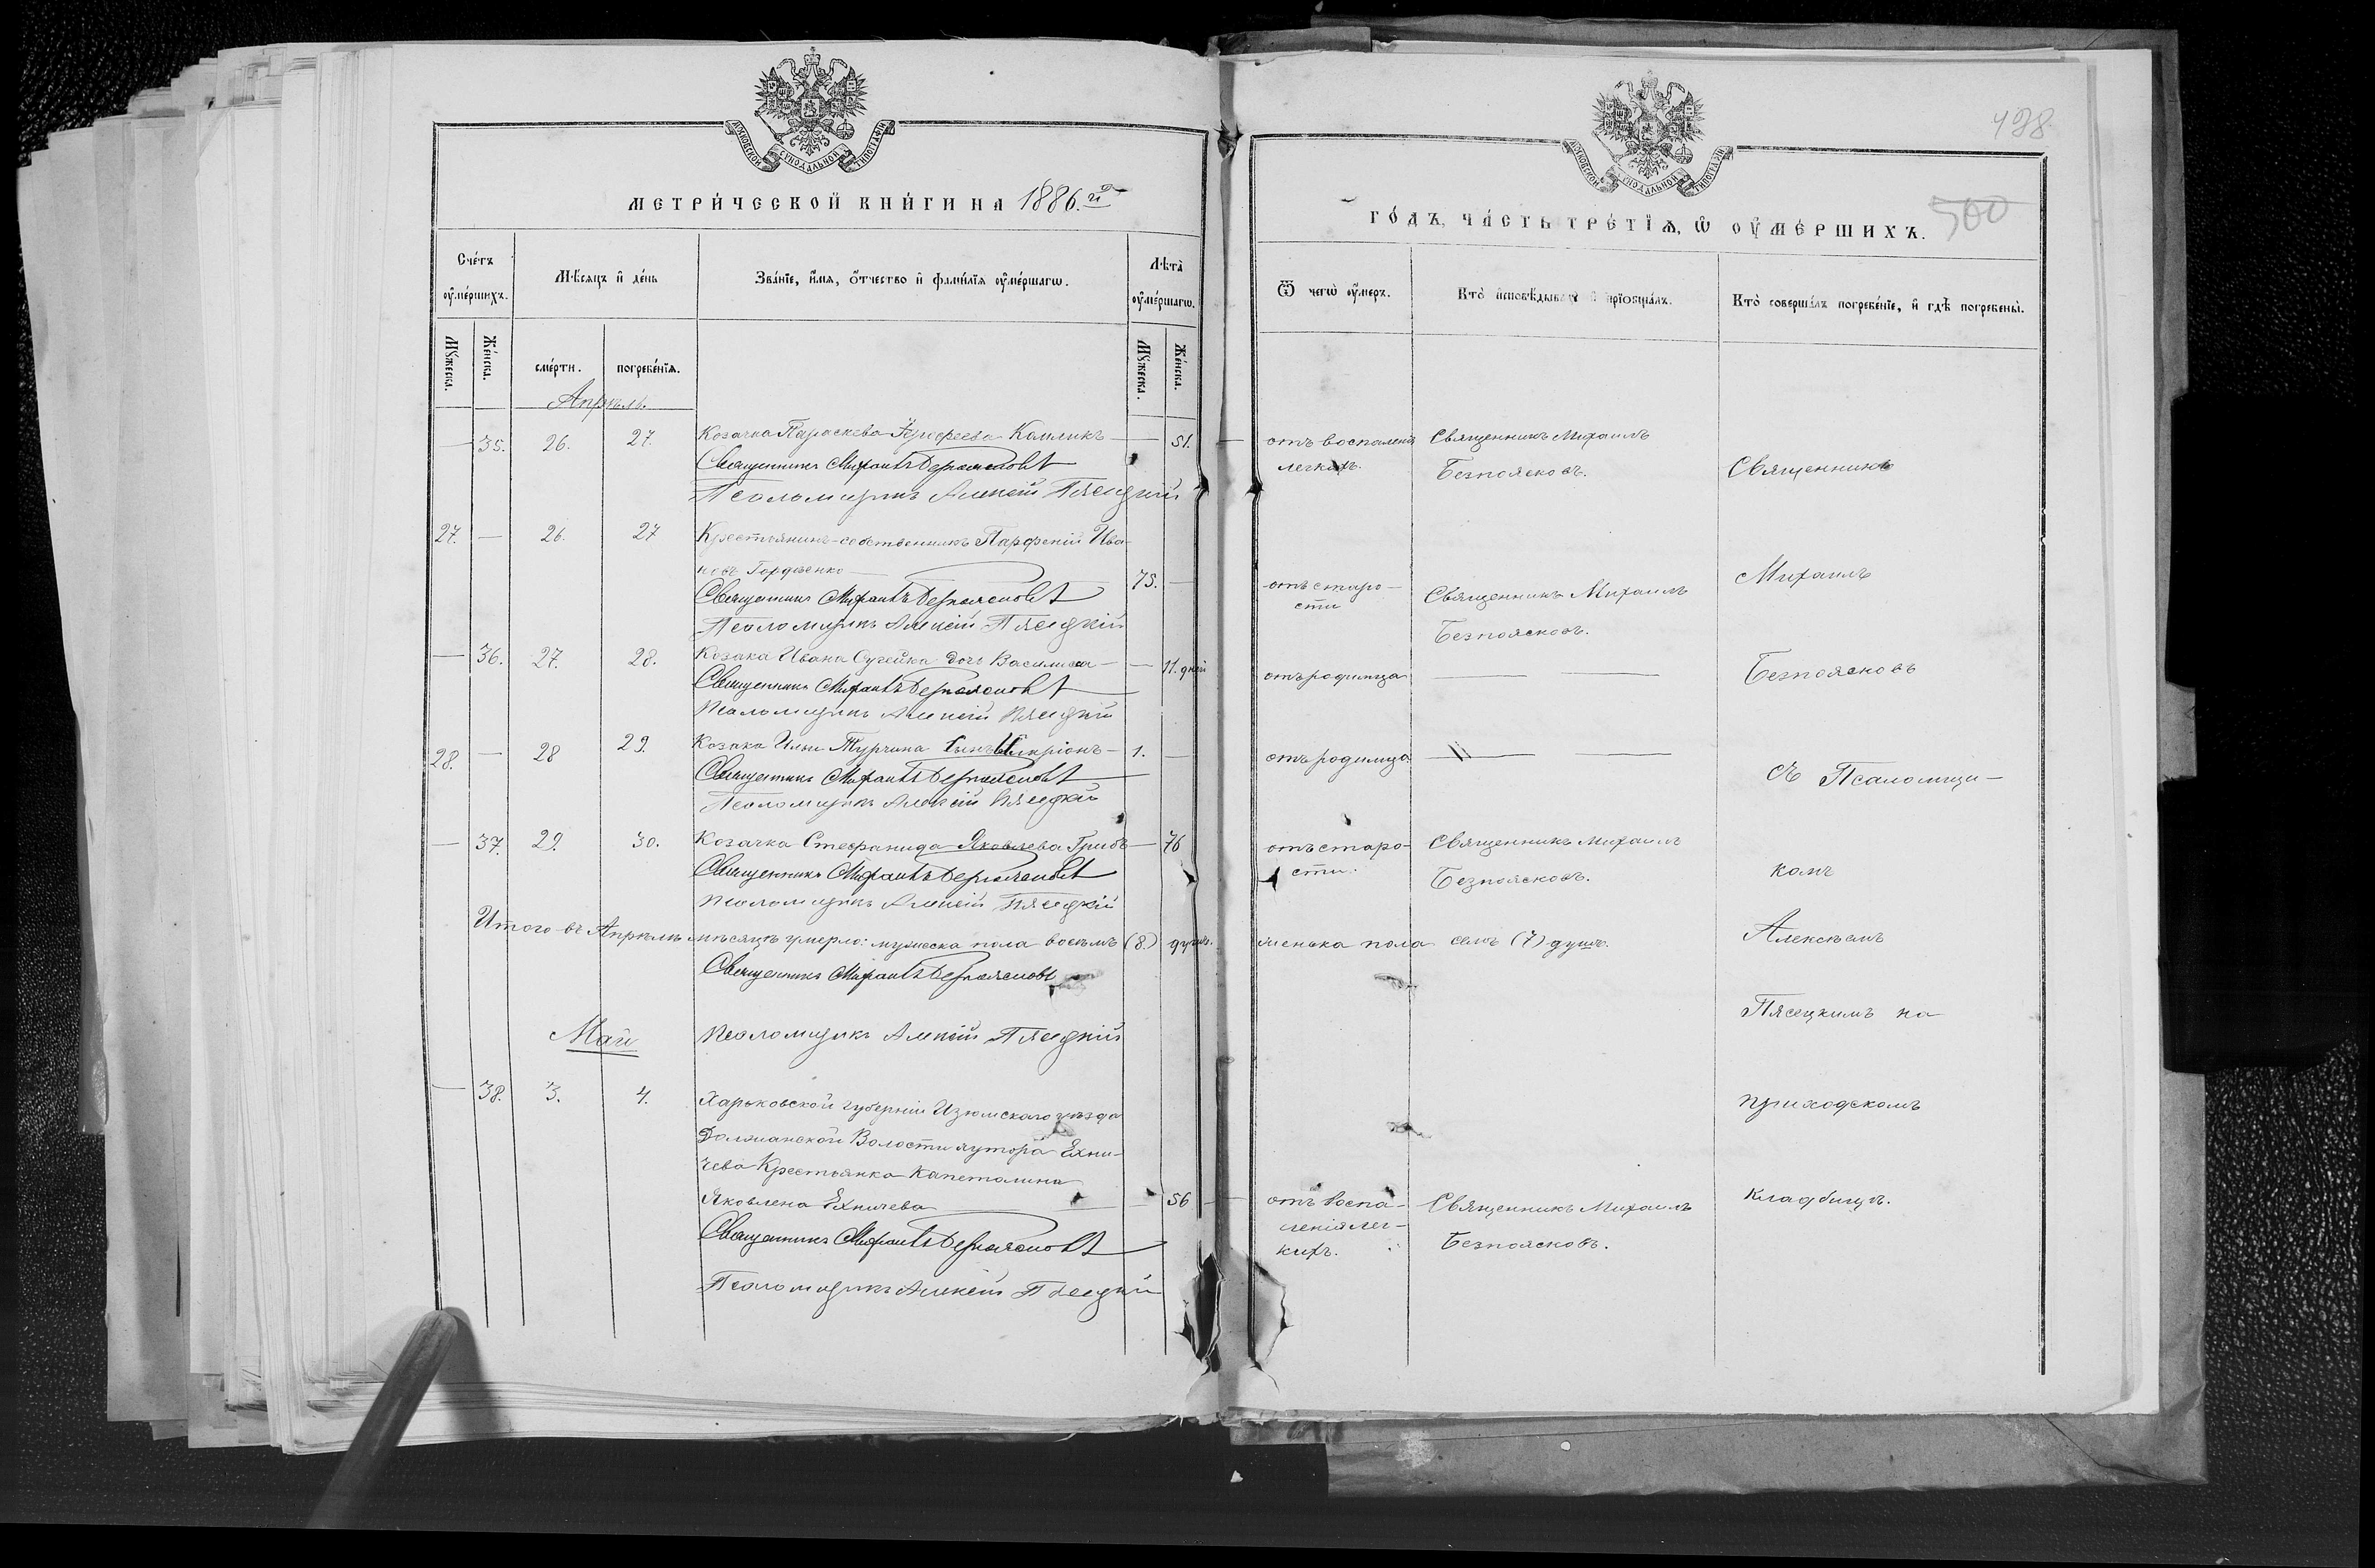 МОСКОВСКОЙ СѴНОДАЛЬНОЙ ТИПОГРАФІИ
МЕТРИ́ЧЕСКОЙ КНИ́ГИ НА 1886.й
Сче́тъ ᲂу҆ме́ршихъ.
Мꙋ́жеска.
Же́нска.
Мѣ́сяцъ и҆ де́нь
сме́рти.
погребе́нїѧ.
Зва́нїе, и҆́мѧ, ѻ҆́тчество и҆ фамѝлїѧ ᲂу҆ме́ршагѡ.
Лѣ́та ᲂу҆ме́ршагѡ.
Мꙋ́жеска.
Же́нска.
Апрѣль.
— 35. 26. 27. Козачка Параскева Камликъ — — 51.
Священникъ Михаилъ Безпоясковъ
Псаломщикъ Алексій Пясецкій
27. — 26. 27 Крестьянинъ-собственникъ Парфеній Ива-
новъ Гордѣенко — 75. —
Священникъ Михаилъ Безпоясковъ
Псаломщикъ Алексій Пясецкій
— 36. 27. 28. Козака Ивана Сугейка дочь Василиса — — 11. дней
Священникъ Михаилъ Безпоясковъ
Псаломщикъ Алексій Пясецкій
28. — 28 29. Козака Ильи Турчина сынъ Иларіонъ — 1. —
Священникъ Михаилъ Безпоясковъ
Псаломщикъ Алексій Пясецкій
— 37. 29. 30. Козачка Стефанида Яковлева Грибъ — 76
Священникъ Михаилъ Безпоясковъ
Псаломщикъ Алексій Пясецкій
Итого въ Апрѣлѣ мѣсяцѣ умерло: мужеска пола восемь (8.) душъ.
Священникъ Михаилъ Безпоясковъ
Май
Псаломщикъ Алексій Пясецкій
— 38. 3. 4. Харьковской губерніи Изюмскаго уѣзда
Волости хутора Ехни-
чева Крестьянка Капетолина
Яковлена Ехничева — — 56
Священникъ Михаилъ Безпоясковъ
Псаломщикъ Алексій Пясецкій
498.
МОСКОВСКОЙ СѴНОДАЛЬНОЙ ТИПОГРАФІИ
ГО́ДЪ, ЧА́СТЬ ТРЕ́ТЇѦ, Ѡ҆ ОУ҆МЕ́РШИХЪ.
500
Ѿ чегѡ̀ ᲂу҆́меръ.
Кто̀ и҆сповѣ́дывалъ и҆ прїѻбща́лъ.
Кто̀ соверша́лъ погребе́нїе, и҆ гдѣ̀ погребены̀.
отъ воспаленія
легкихъ.
Священникъ Михаилъ
Безпоясковъ.
Священникъ
отъ старо-
сти
Священникъ Михаилъ
Безпоясковъ.
Михаилъ
отъ родимца — —
Безпоясковъ
отъ родимца — —
съ Псаломщи-
отъ старо-
сти.
Священникъ Михаилъ
Безпоясковъ.
комъ
женска пола семь (7) душъ.
Алексѣемъ
Пясецкимъ на
приходскомъ
отъ воспа-
ленія лег-
кихъ.
Священникъ Михаилъ
Безпоясковъ.
кладбищѣ.